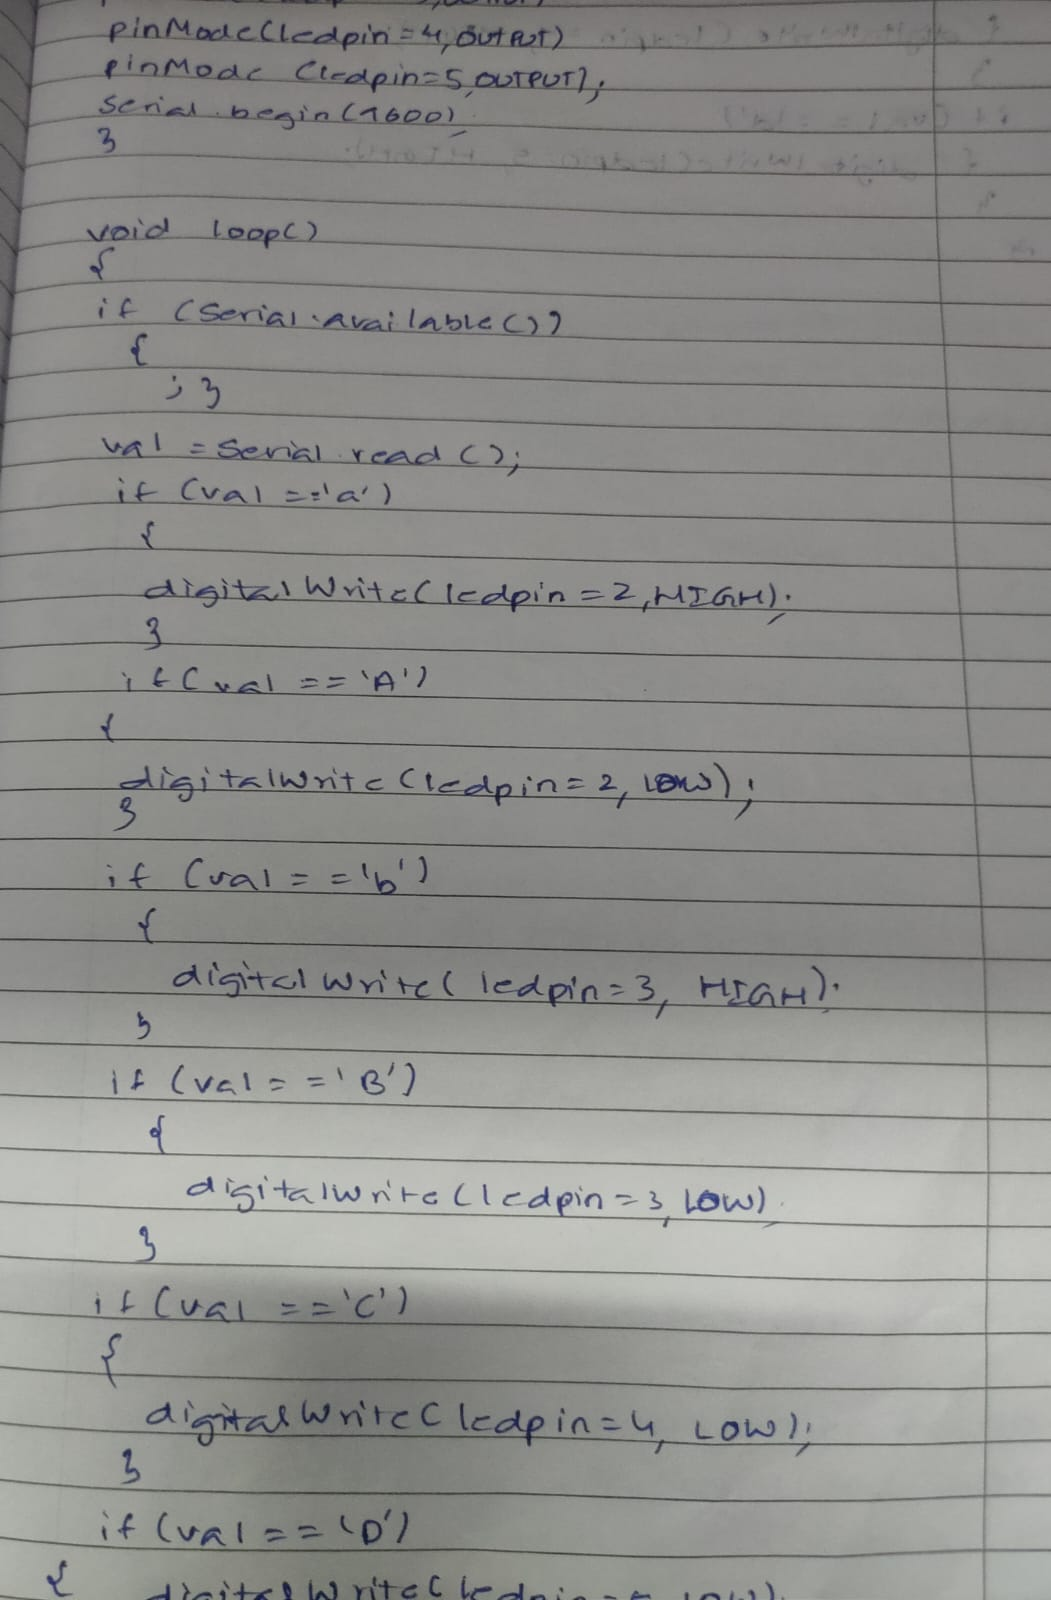 pinMode(ledpin=4, OUTPUT)
pinMode (ledpin=5, OUTPUT);
Serial.begin(9600)
}
void loop()
{
if (Serial.available())
{
; }
val = Serial.read();
if (val =='a')
{
digitalWrite(ledpin=2,HIGH);
}
if(val =='A')
{
digitalwrite(ledpin=2, LOW);
}
if (val=='b')
{
digitalWrite( ledpin=3, HIGH);
}
if (val=='B')
{
digitalwrite(ledpin=3, LOW)
}
if(val =='C')
{
digitalWrite(ledpin=4, LOW);
}
if (val=='D')
{ digitalWrite(ledpin=5, LOW).